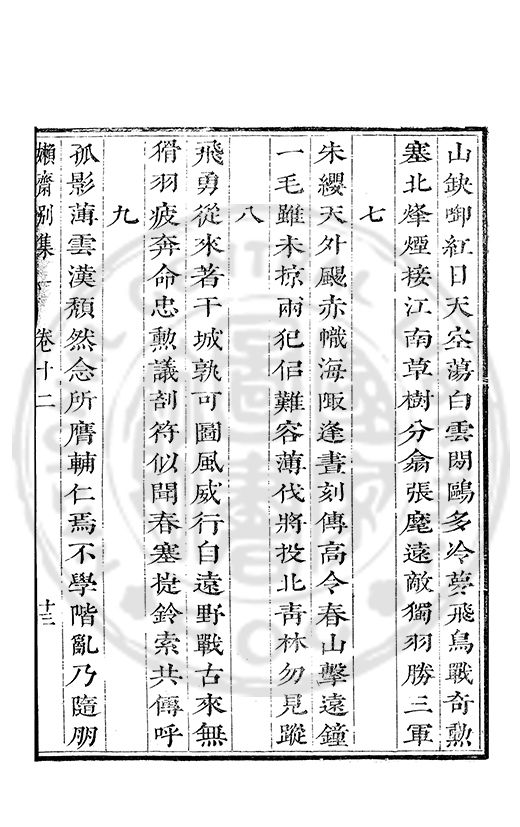 山缺啣紅日天空蕩白雲閒鷗多冷夢飛鳥戰奇勳
塞北烽煙接江南草樹分翕張麾遠敵獨羽勝三軍
七
朱纓天外颺赤幟海陬逢晝刻傳高令春山擊遠鐘
一毛雖未掠兩犯侣難容薄伐將投北青林勿見蹤
八
飛勇從來著干城孰可圖風威行自遠野戰古來無
猾羽疲奔命忠勳議剖符似聞春塞捷鈴索共傳呼
九
孤影薄雲漢頹然念所膺輔仁焉不學階亂乃隨朋
嬾齋別集
卷十二
十三